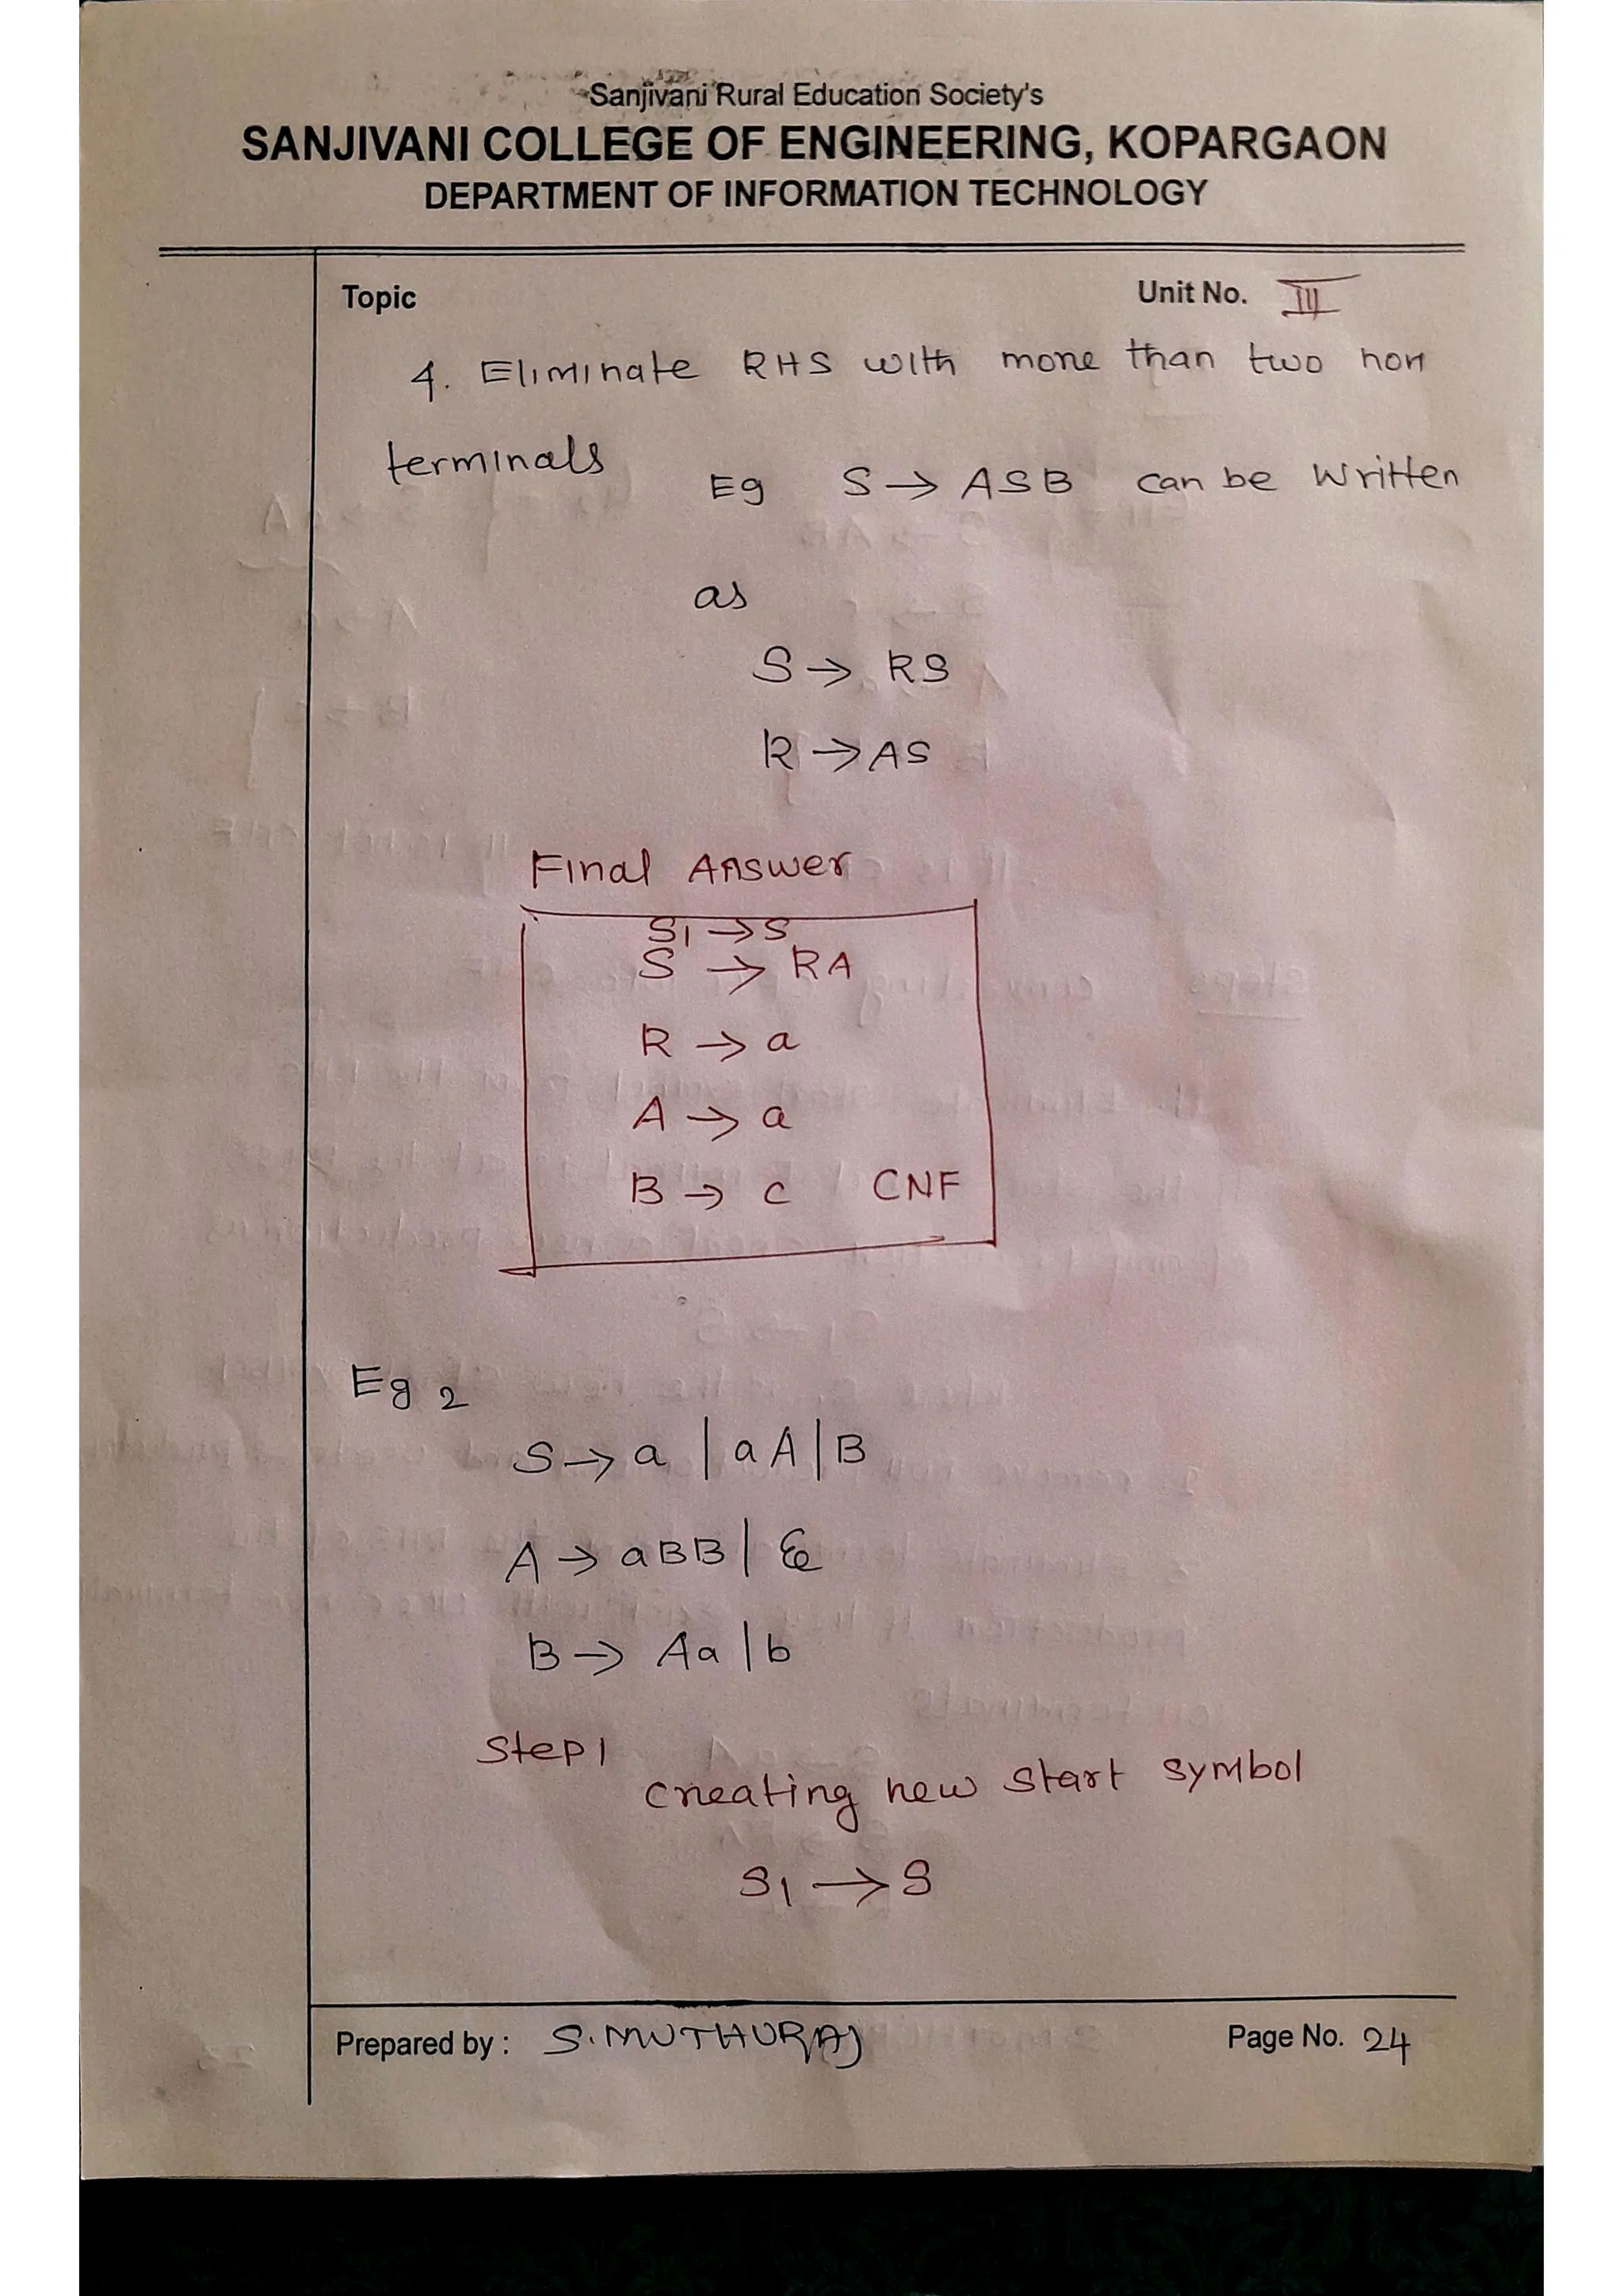 Sanjivani Rural Education Society's
SANJIVANI COLLEGE OF ENGINEERING, KOPARGAON
DEPARTMENT OF INFORMATION TECHNOLOGY
Topic Unit No. III
4. Eliminate RHS with more than two non
terminals Eg S → ASB can be written
as
S → RS
R → AS
Final Answer
S1 → S
S → RA
R → a
A → a
B → c CNF
Eg 2
S → a | aA | B
A → aBB | ε
B → Aa | b
Step 1
creating new start symbol
S1 → S
Prepared by : S. MUTHURAJ Page No. 24